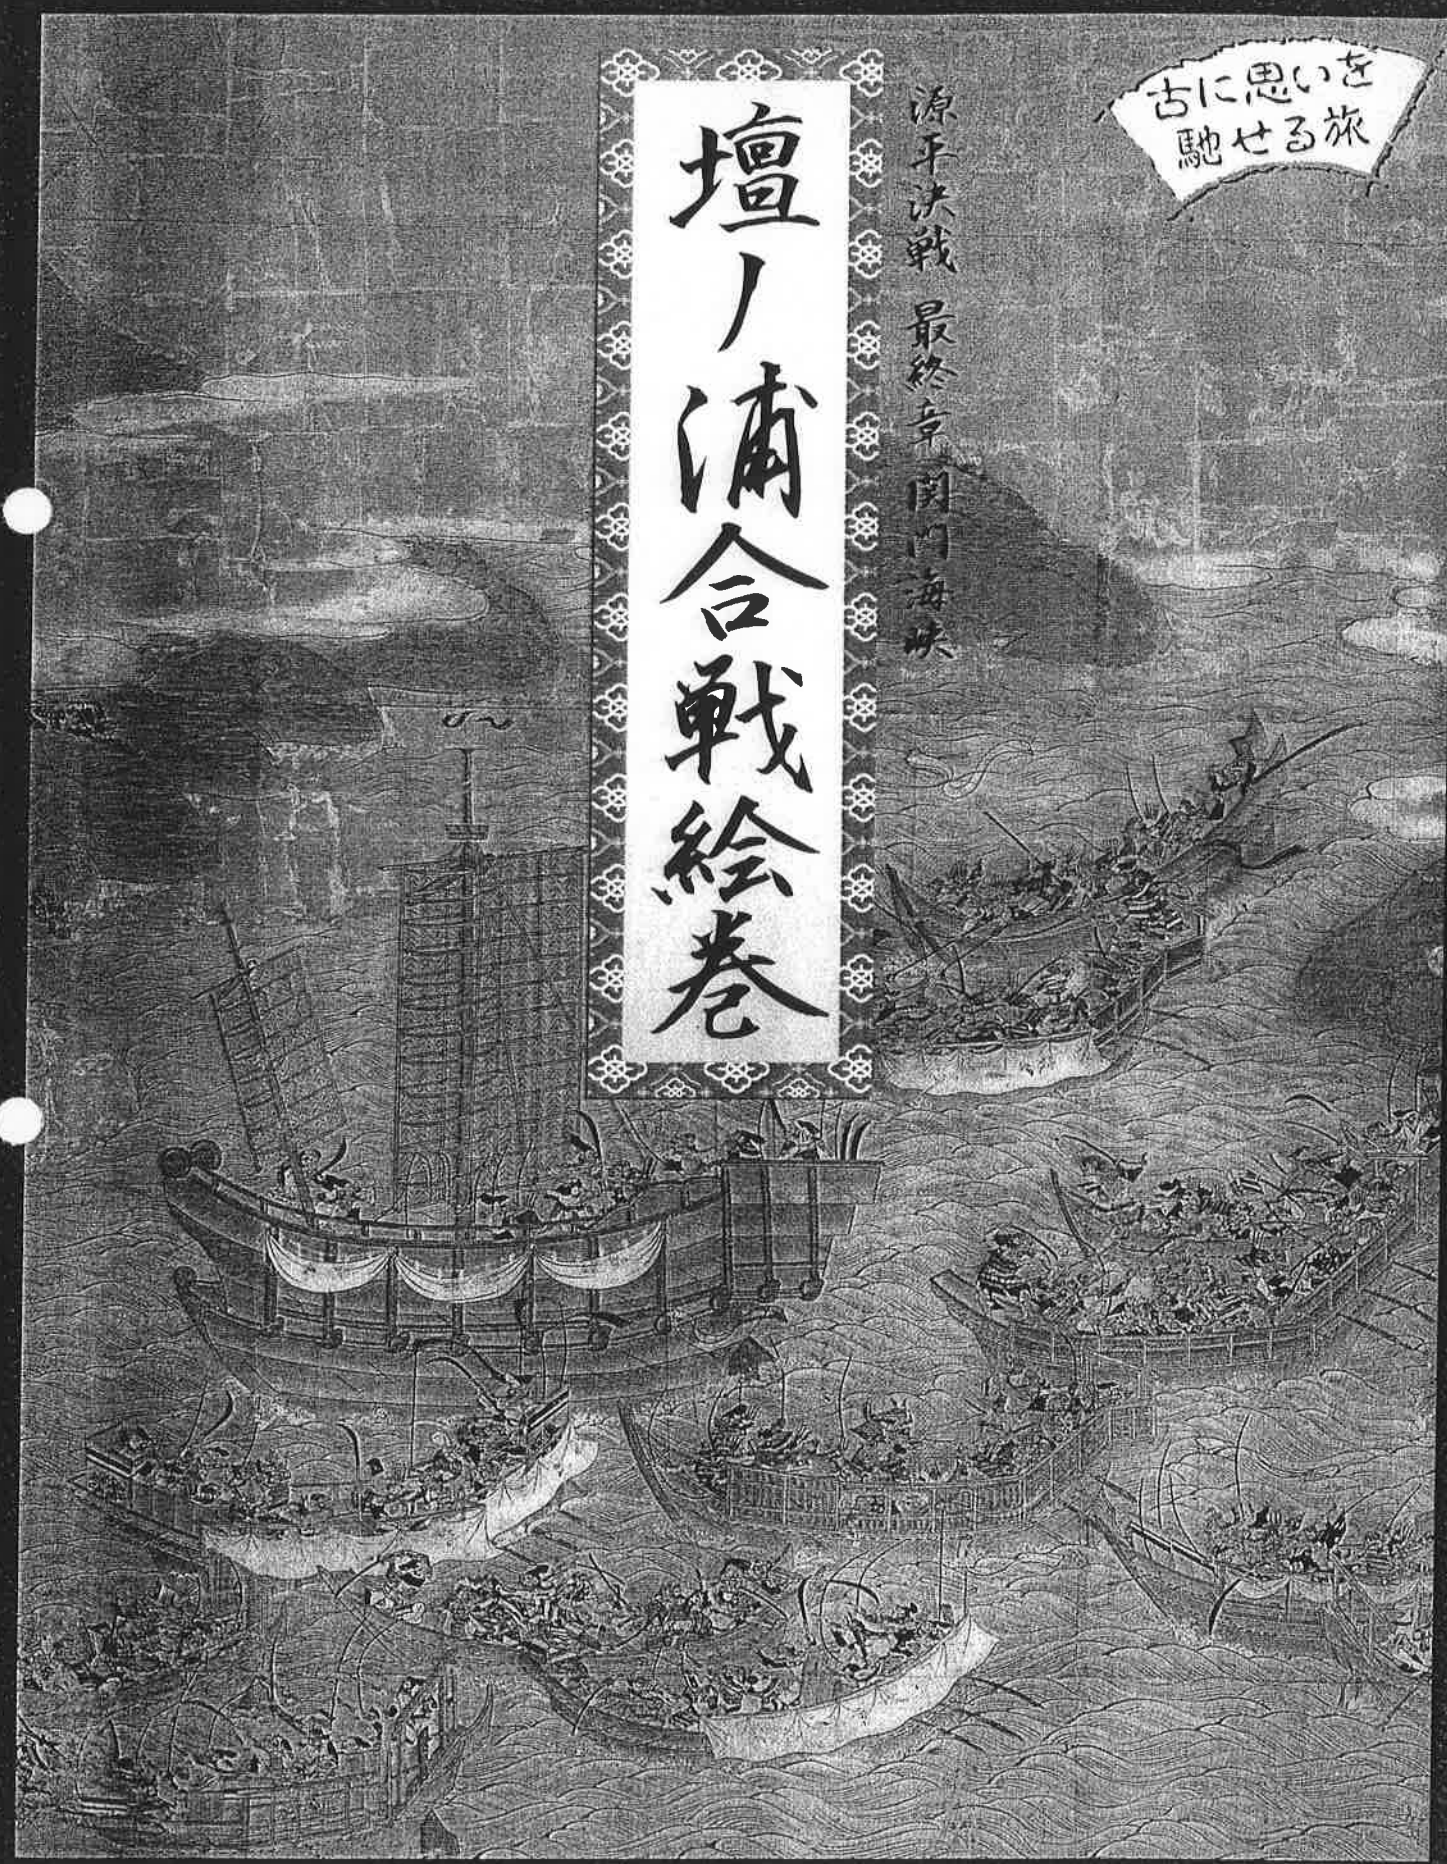 古に思いを
馳せる旅
源平決戦 最終章 関門海峡
壇ノ浦合戦絵巻